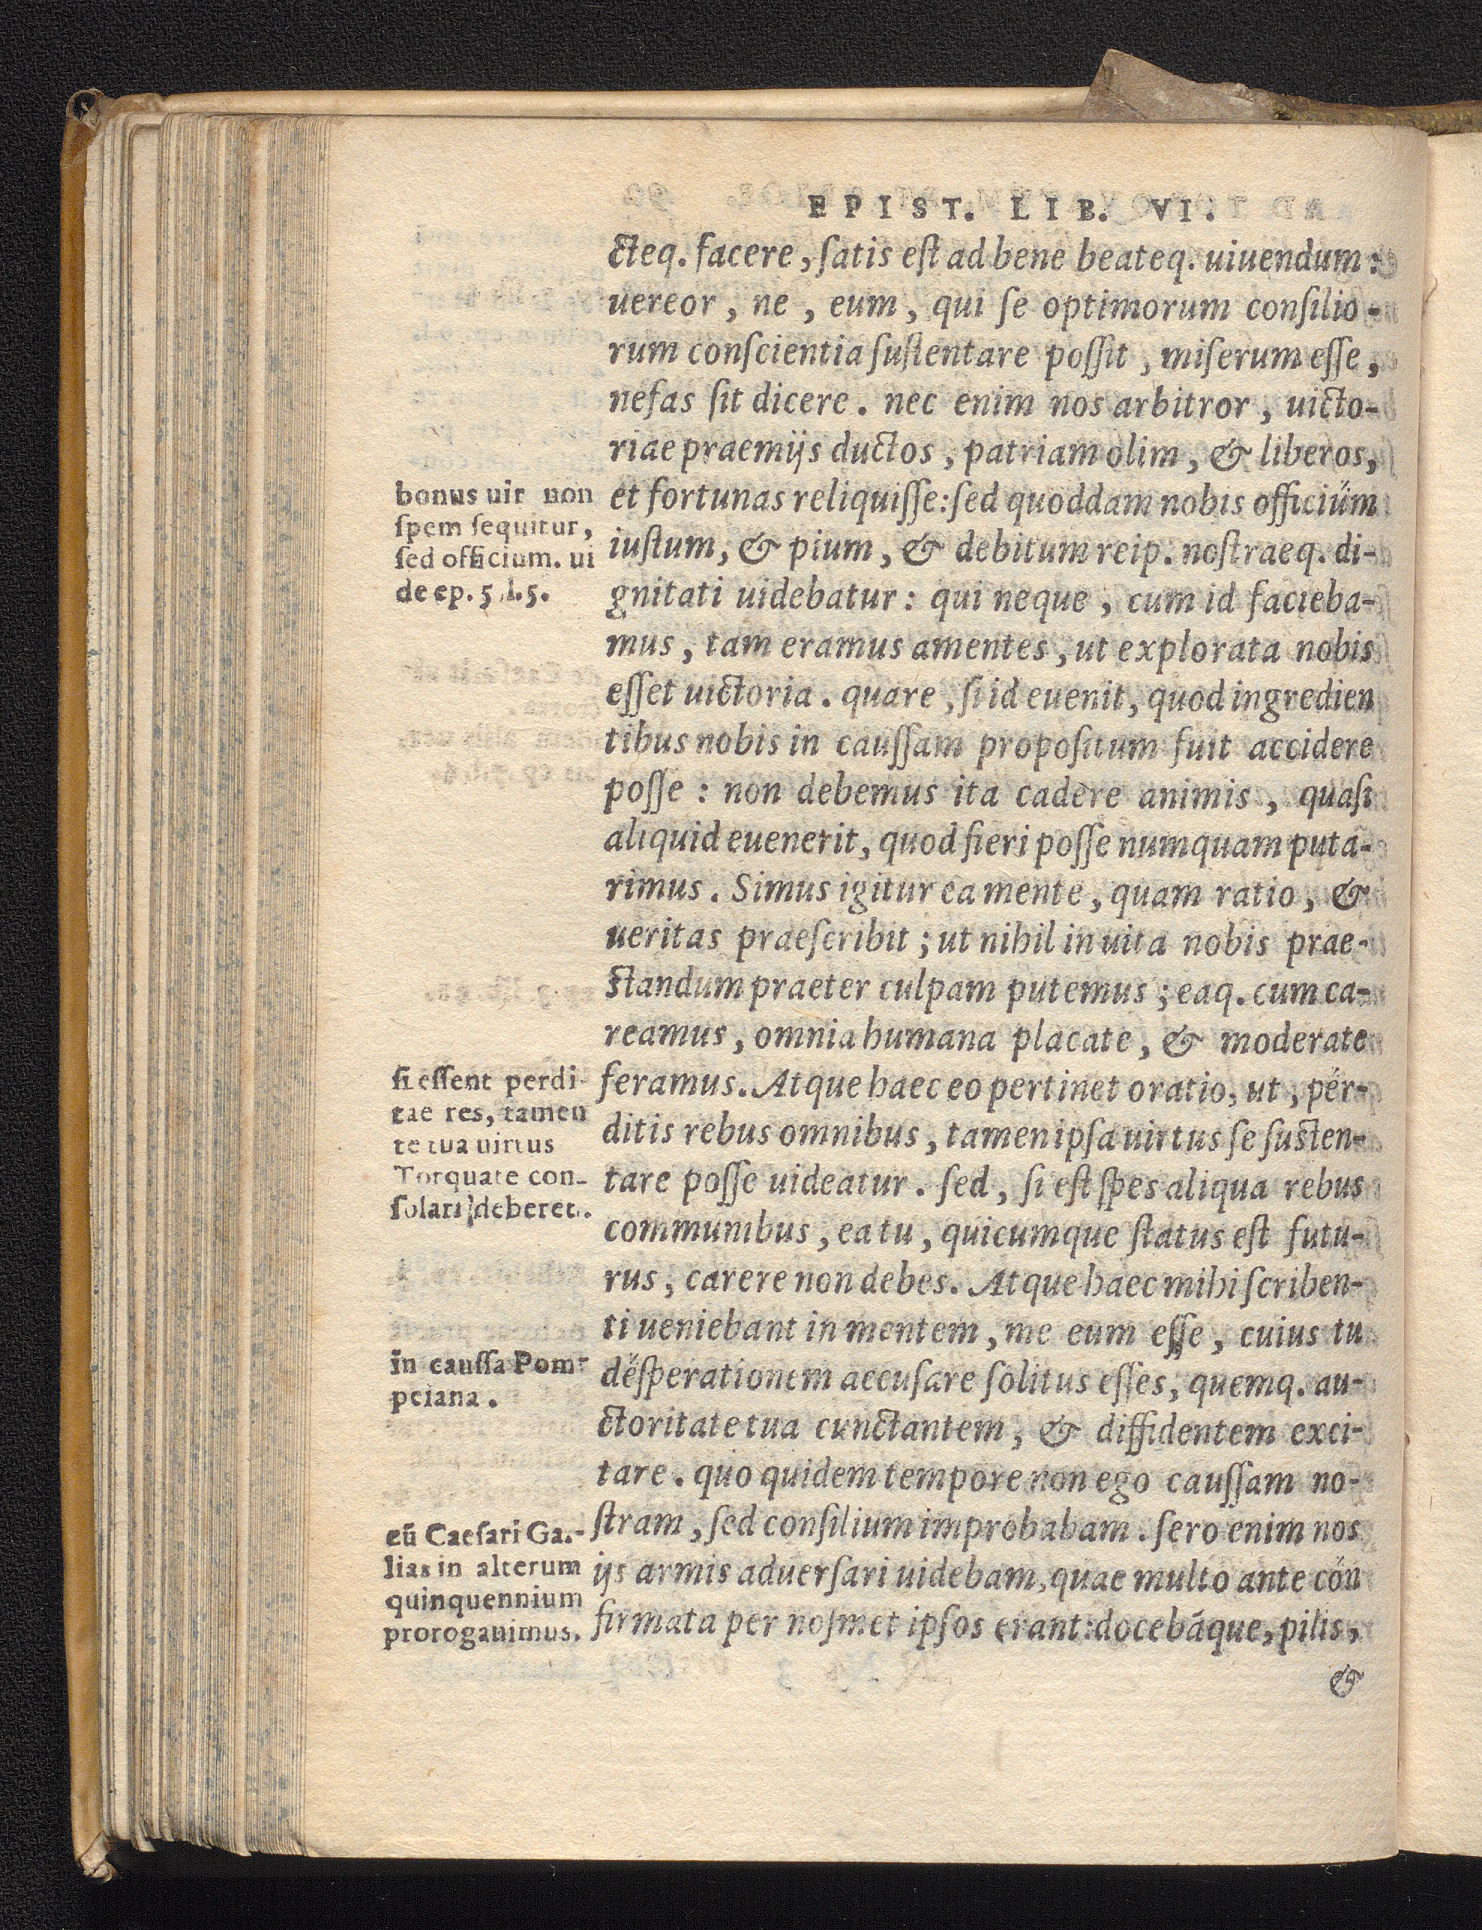 EPIST. LIB. VI.
cteq. facere, ſatis eſt ad bene beateq. uiuendum:
uereor, ne, eum, qui ſe optimorum conſilio-
rum conſcientia ſuſtentare poſſit, miſerum eſſe,
nefas ſit dicere. nec enim nos arbitror, uicto-
riae praemijs ductos, patriam olim, & liberos,
et fortunas reliquiſſe: ſed quoddam nobis officiũm
iuſtum, & pium, & debitum reip. noſtraeq. di-
gnitati uidebatur: qui neque, cum id facieba-
mus, tam eramus amentes, ut explorata nobis
eſſet uictoria. quare, ſi id euenit, quod ingredien
tibus nobis in cauſſam propoſitum fuit accidere
poſſe: non debemus ita cadere animis, quaſi
aliquid euenerit, quod fieri poſſe numquam puta-
rimus. Simus igitur ea mente, quam ratio, &
ueritas praeſcribit; ut nihil in uita nobis prae-
ſtandum praeter culpam putemus; eaq. cum ca-
reamus, omnia humana placate, & moderate
feramus. Atque haec eo pertinet oratio, ut, per-
ditis rebus omnibus, tamen ipſa uirtus ſe ſuſten-
tare poſſe uideatur. ſed, ſi eſt ſpes aliqua rebus
communibus, ea tu, quicumque ſtatus eſt futu-
rus, carere non debes. Atque haec mihi ſcriben-
ti ueniebant in mentem, me eum eſſe, cuius tu
deſperationem accuſare ſolitus eſſes, quemq. au-
ctoritate tua cunctantem, & diffidentem exci-
tare. quo quidem tempore non ego cauſſam no-
ſtram, ſed conſilium improbabam. ſero enim nos
ijs armis aduerſari uidebam, quae multo ante cõn
firmata per noſmet ipſos erant: docebãque, pilis,
&
bonus uir non
ſpem ſequitur,
ſed officium. ui
de ep. 5. l. 5.
ſi eſſent perdi-
tae res, tamen
te tua uirtus
Torquate con-
ſolari deberet.
in cauſſa Pom-
peiana.
cũ Caeſari Ga-
lias in alterum
quinquennium
prorogauimus.